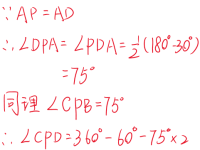 ∵ AP = AD
∴ ∠DPA = ∠PDA = 1/2(180°-30°)
= 75°
同理 ∠CPB = 75°
∴ ∠CPD = 360° - 60° - 75° × 2